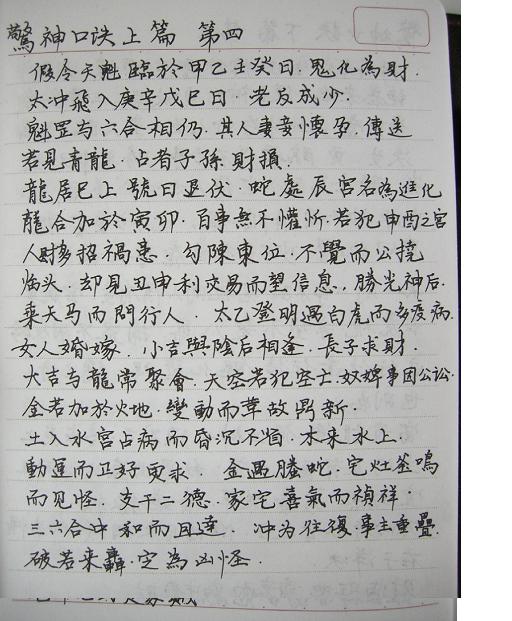 驚神口诀上篇 第四
假令天魁臨於甲乙壬癸日．鬼化為財．
太冲飛入庚辛戊巳日．老反成少．
魁罡与六合相仍．其人妻妾懷孕．傳送
若見青龍．占者子孫財損．
龍居巳上號曰退伏．蛇處辰宮名為進化
龍合加於寅卯．百事無不懽忻．若犯申酉之宮
人財多招禍患．勾陳東位．不覺而公撓
临头．却見丑申利交易而望信息，勝光神后．
乘天马而問行人．太乙登明遇白虎而多疫病．
女人婚嫁．小吉與陰后相逢．長子求財．
大吉与龍常聚會．天空若犯空亡．奴婢事因公讼．
金若加於火地．變動而革故鼎新．
土入水宮占病而昏沉不省．木来水上．
動運而正好更求．金遇螣蛇．宅灶釜鳴
而见怪．支干二德．家宅喜氣而禎祥．
三六合中和而且達．冲为往復．事主重疊．
破若来轟．定為凶怪．